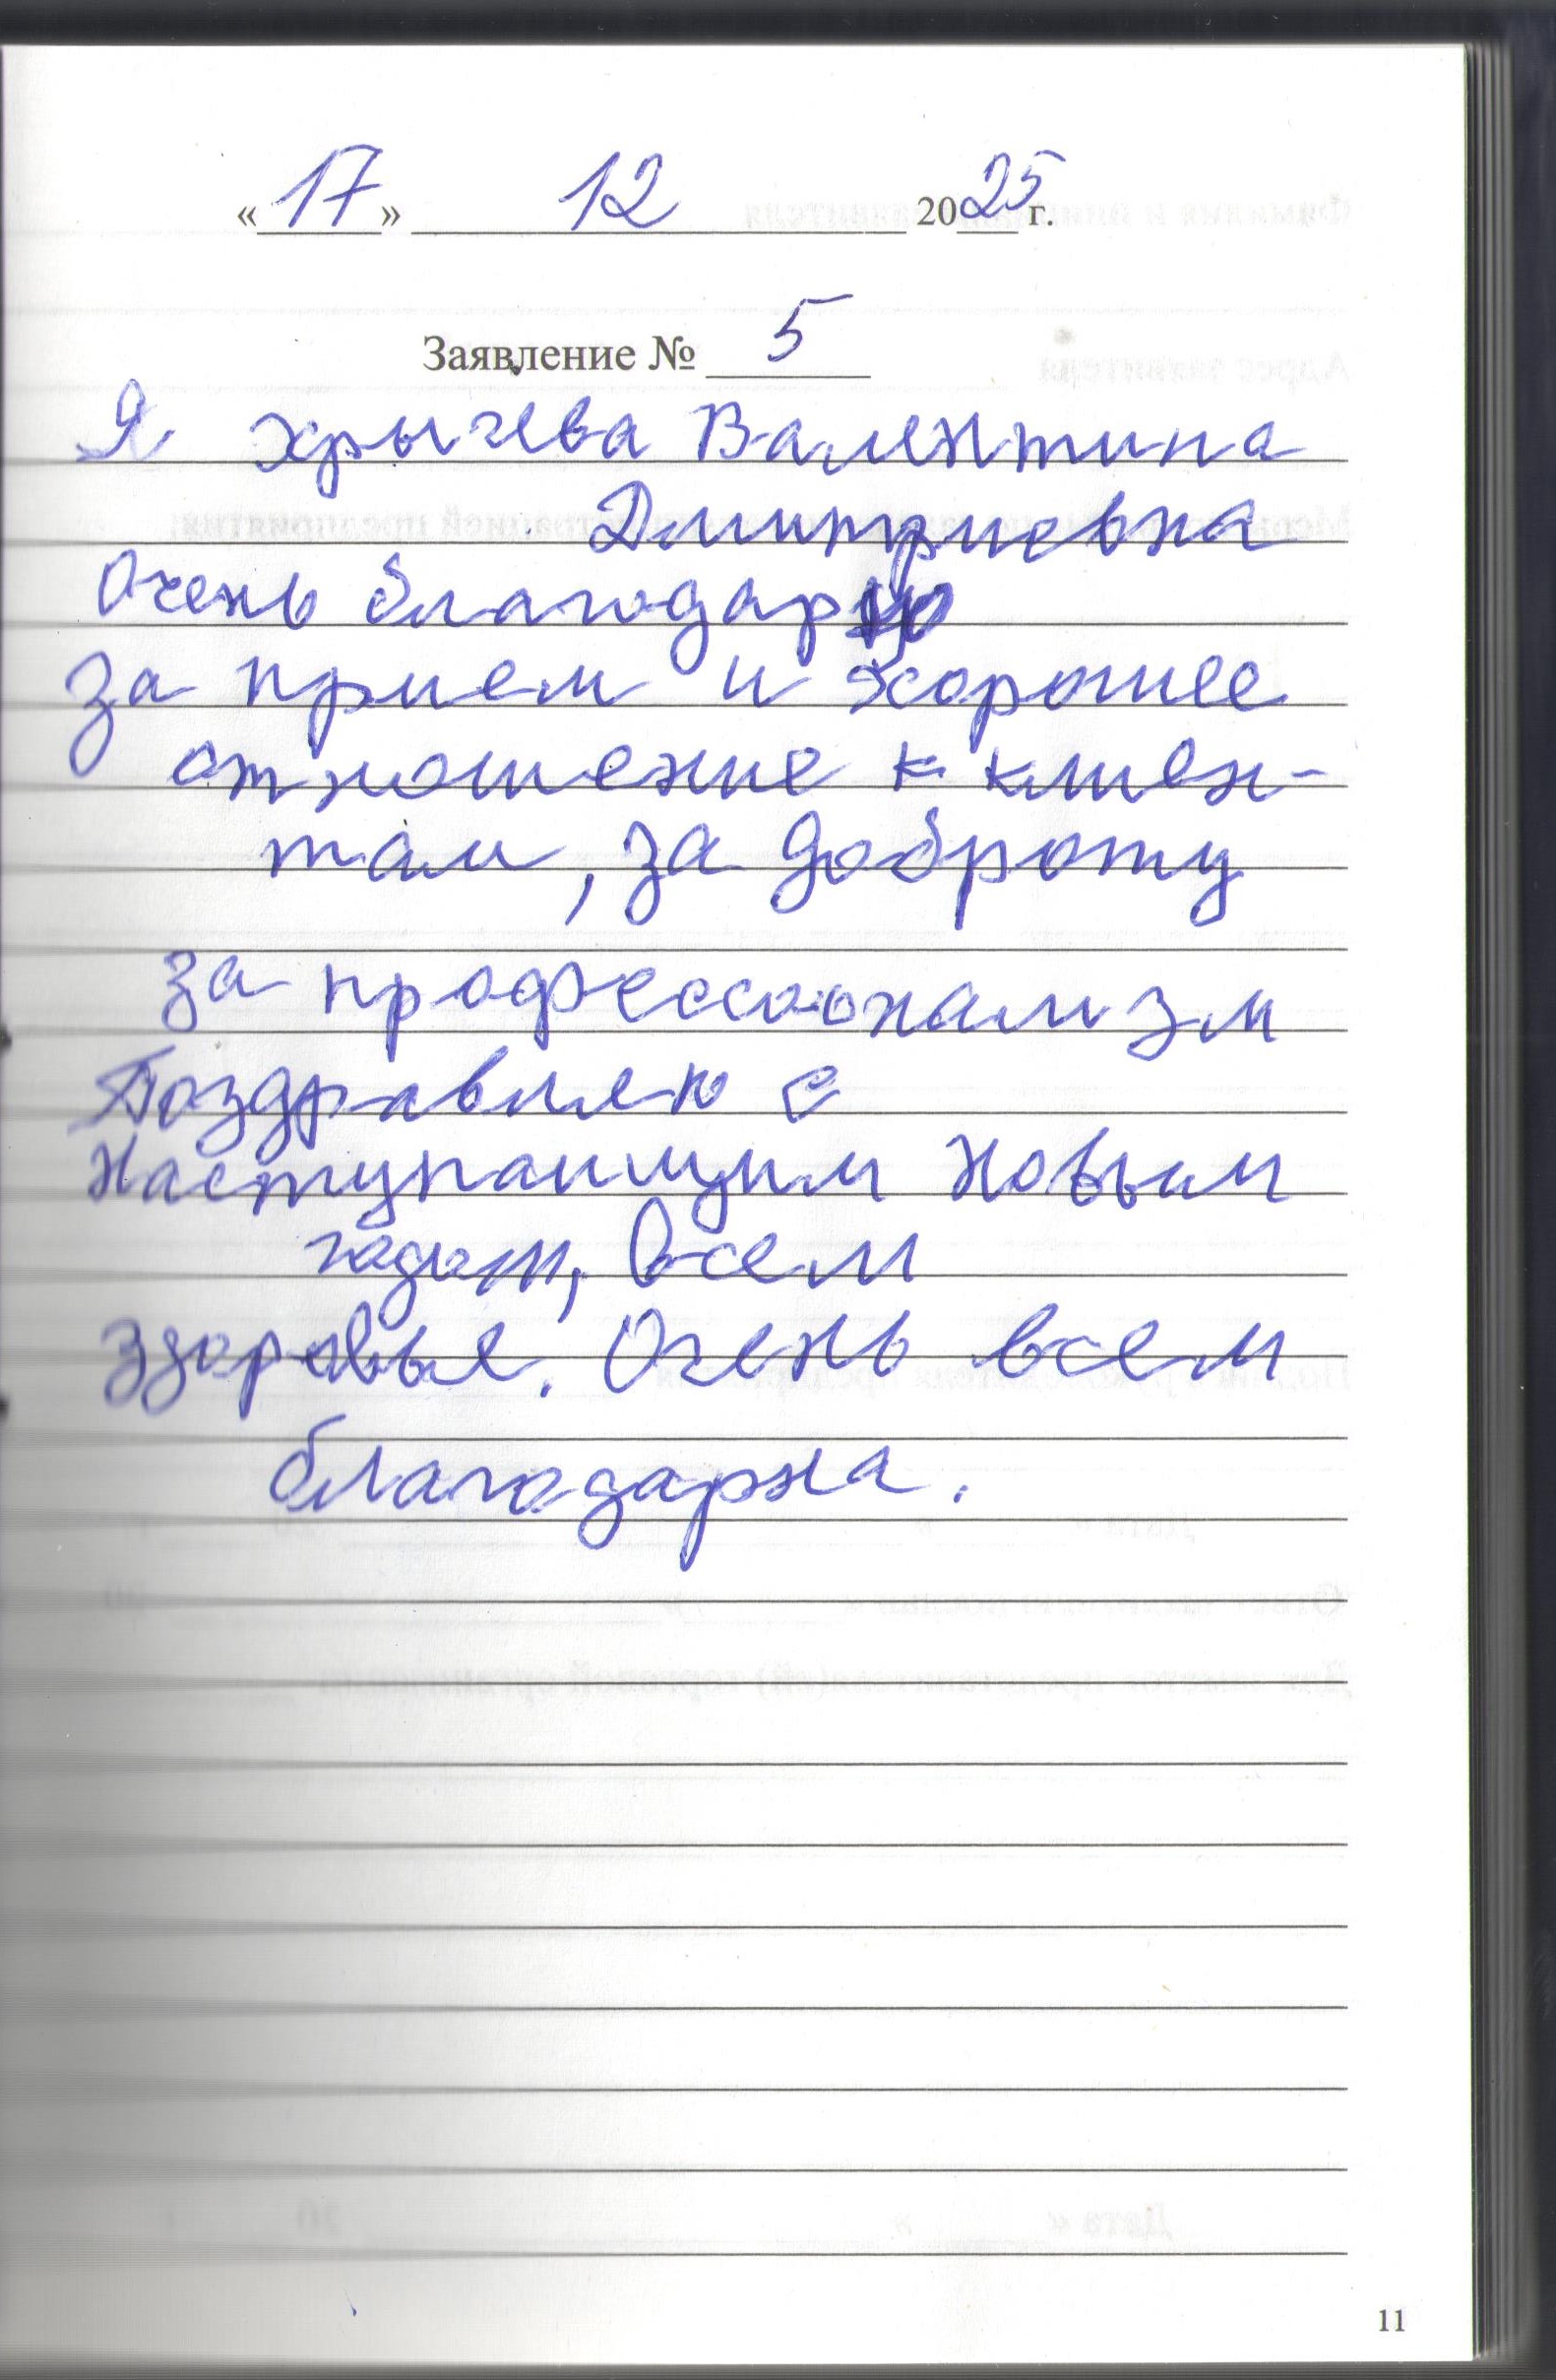 «17» 12 2025 г.
Заявление № 5
Я Хрычева Валентина
Дмитриевна
Очень благодарю
за прием и хорошее
отношение к клиен-
там, за доброту
за профессионализм
Поздравляю с
Наступающим Новым
годом, всем
здоровье. Очень всем
благодарна.
11